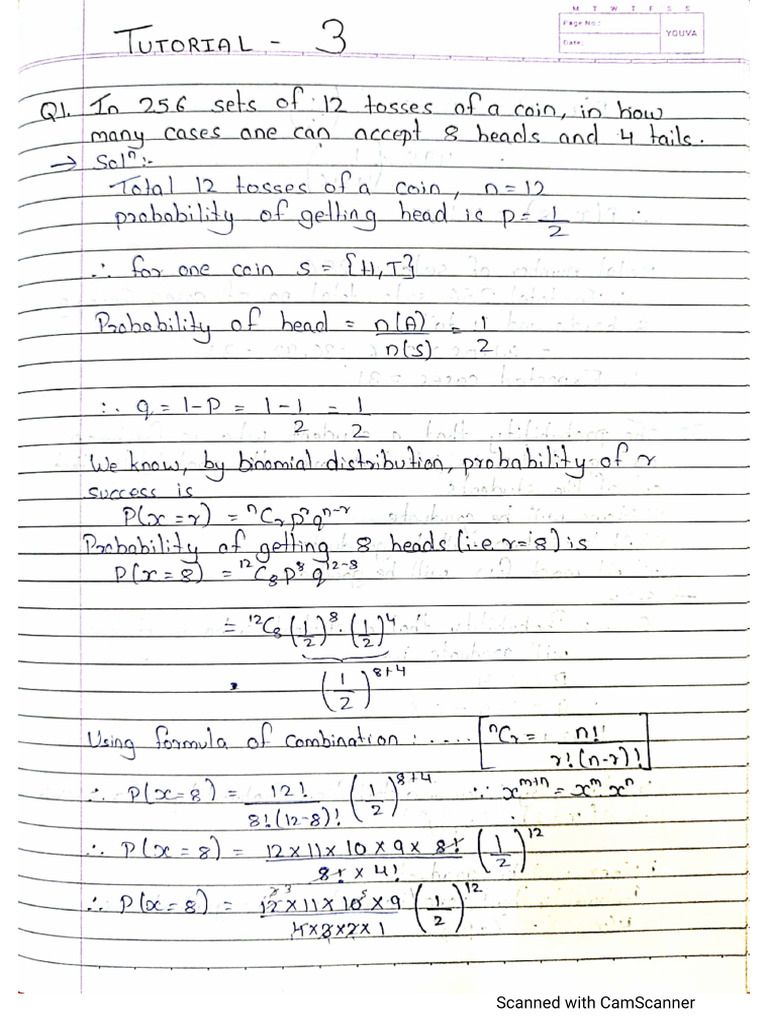 M T W T F S S
Page No.:
Date:
YOUVA
TUTORIAL - 3
Q1. In 256 sets of 12 tosses of a coin, in how
many cases one can accept 8 heads and 4 tails.
→ Solⁿ:-
Total 12 tosses of a coin, n=12
probability of getting head is p=1/2
∴ for one coin s = {H,T}
Probability of head = n(A)/n(S) = 1/2
∴ q = 1-P = 1-1/2 = 1/2
We know, by binomial distribution, probability of r
success is
P(x=r) = ⁿCᵣ pʳ qⁿ⁻ʳ
Probability of getting 8 heads (i.e r=8) is
P(x=8) = ¹²C₈ p⁸ q¹²⁻⁸
= ¹²C₈ (1/2)⁸ · (1/2)⁴
(1/2)⁸⁺⁴
Using formula of combination : .... [ⁿCᵣ = n!/r!(n-r)!]
∴ P(x=8) = 12!/8!(12-8)! (1/2)⁸⁺⁴ ∵ xᵐ⁺ⁿ = xᵐ · xⁿ
∴ P(x=8) = 12×11×10×9×8!/8!×4! (1/2)¹²
∴ P(x=8) = 12×11×10×9/4×3×2×1 (1/2)¹²
Scanned with CamScanner